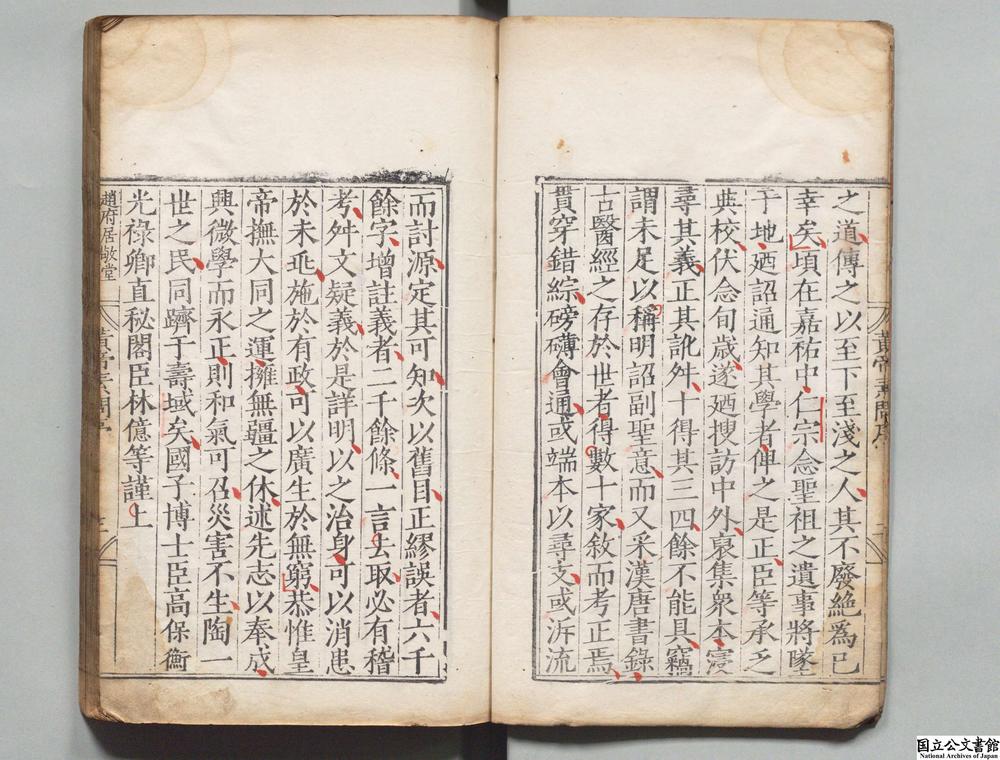 之道傳之以至下至淺之人其不廢絕爲已
幸矣頃在嘉祐中仁宗念聖祖之遺事將墜
于地廼詔通知其學者俾之是正臣等承乏
典校伏念旬歲遂廼搜訪中外裒集衆本寖
尋其義正其訛舛十得其三四餘不能具竊
謂未足以稱明詔副聖意而又采漢唐書錄
古醫經之存於世者得數十家敘而考正焉
貫穿錯綜磅礴會通或端本以尋支或泝流
黃帝素問序
二
而計源定其可知次以舊目正繆誤者六千
餘字增註義者二千餘條一言去取必有稽
考舛文疑義於是詳明以之治身可以消患
於未兆施於有政可以廣生於無窮恭惟皇
帝撫大同之運擁無疆之休述先志以奉成
興微學而永正則和氣可召災害不生陶一
世之民同躋于壽域矣國子博士臣高保衡
光祿卿直秘閣臣林億等謹上
趙府居敬堂
黃帝素問序
国立公文書館
National Archives of Japan